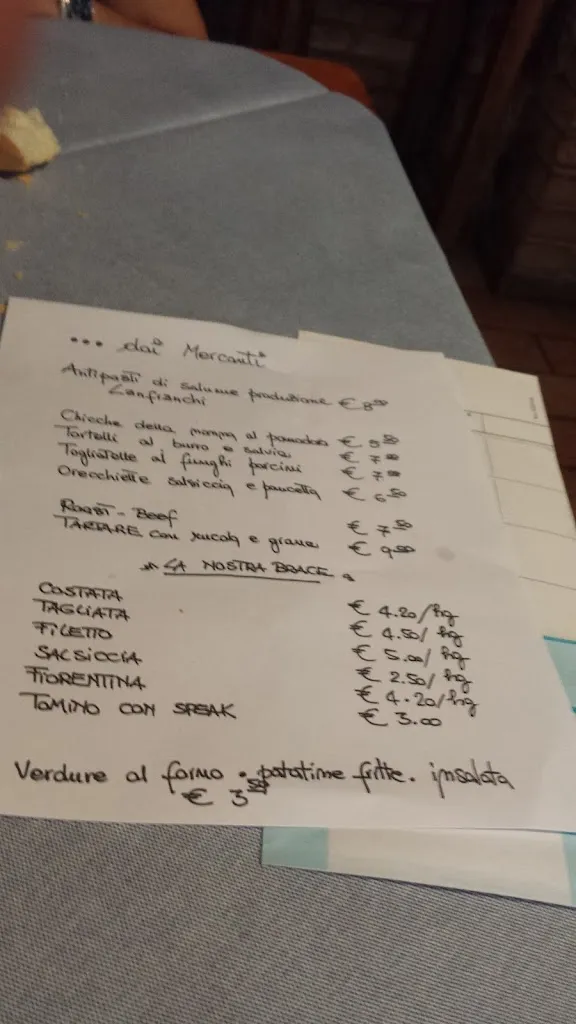 ... dai Mercanti
Antipasti di salume produzione € 8.00
Lanfranchi
Chicche della nonna al pomodoro € 5.50
Tortelli al burro e salvia € 7.00
Tagliatelle ai funghi porcini € 7.00
Orecchiette salsiccia e pancetta € 6.50
Roast-Beef € 7.50
TARTARE con rucola e grana € 9.00
LA NOSTRA BRACE
COSTATA € 4.20/hg
TAGLIATA € 4.50/hg
FILETTO € 5.00/hg
SALSICCIA € 2.50/hg
FIORENTINA € 4.20/hg
TOMINO CON SPEAK € 3.00
Verdure al forno . patatine fritte. insalata
€ 3